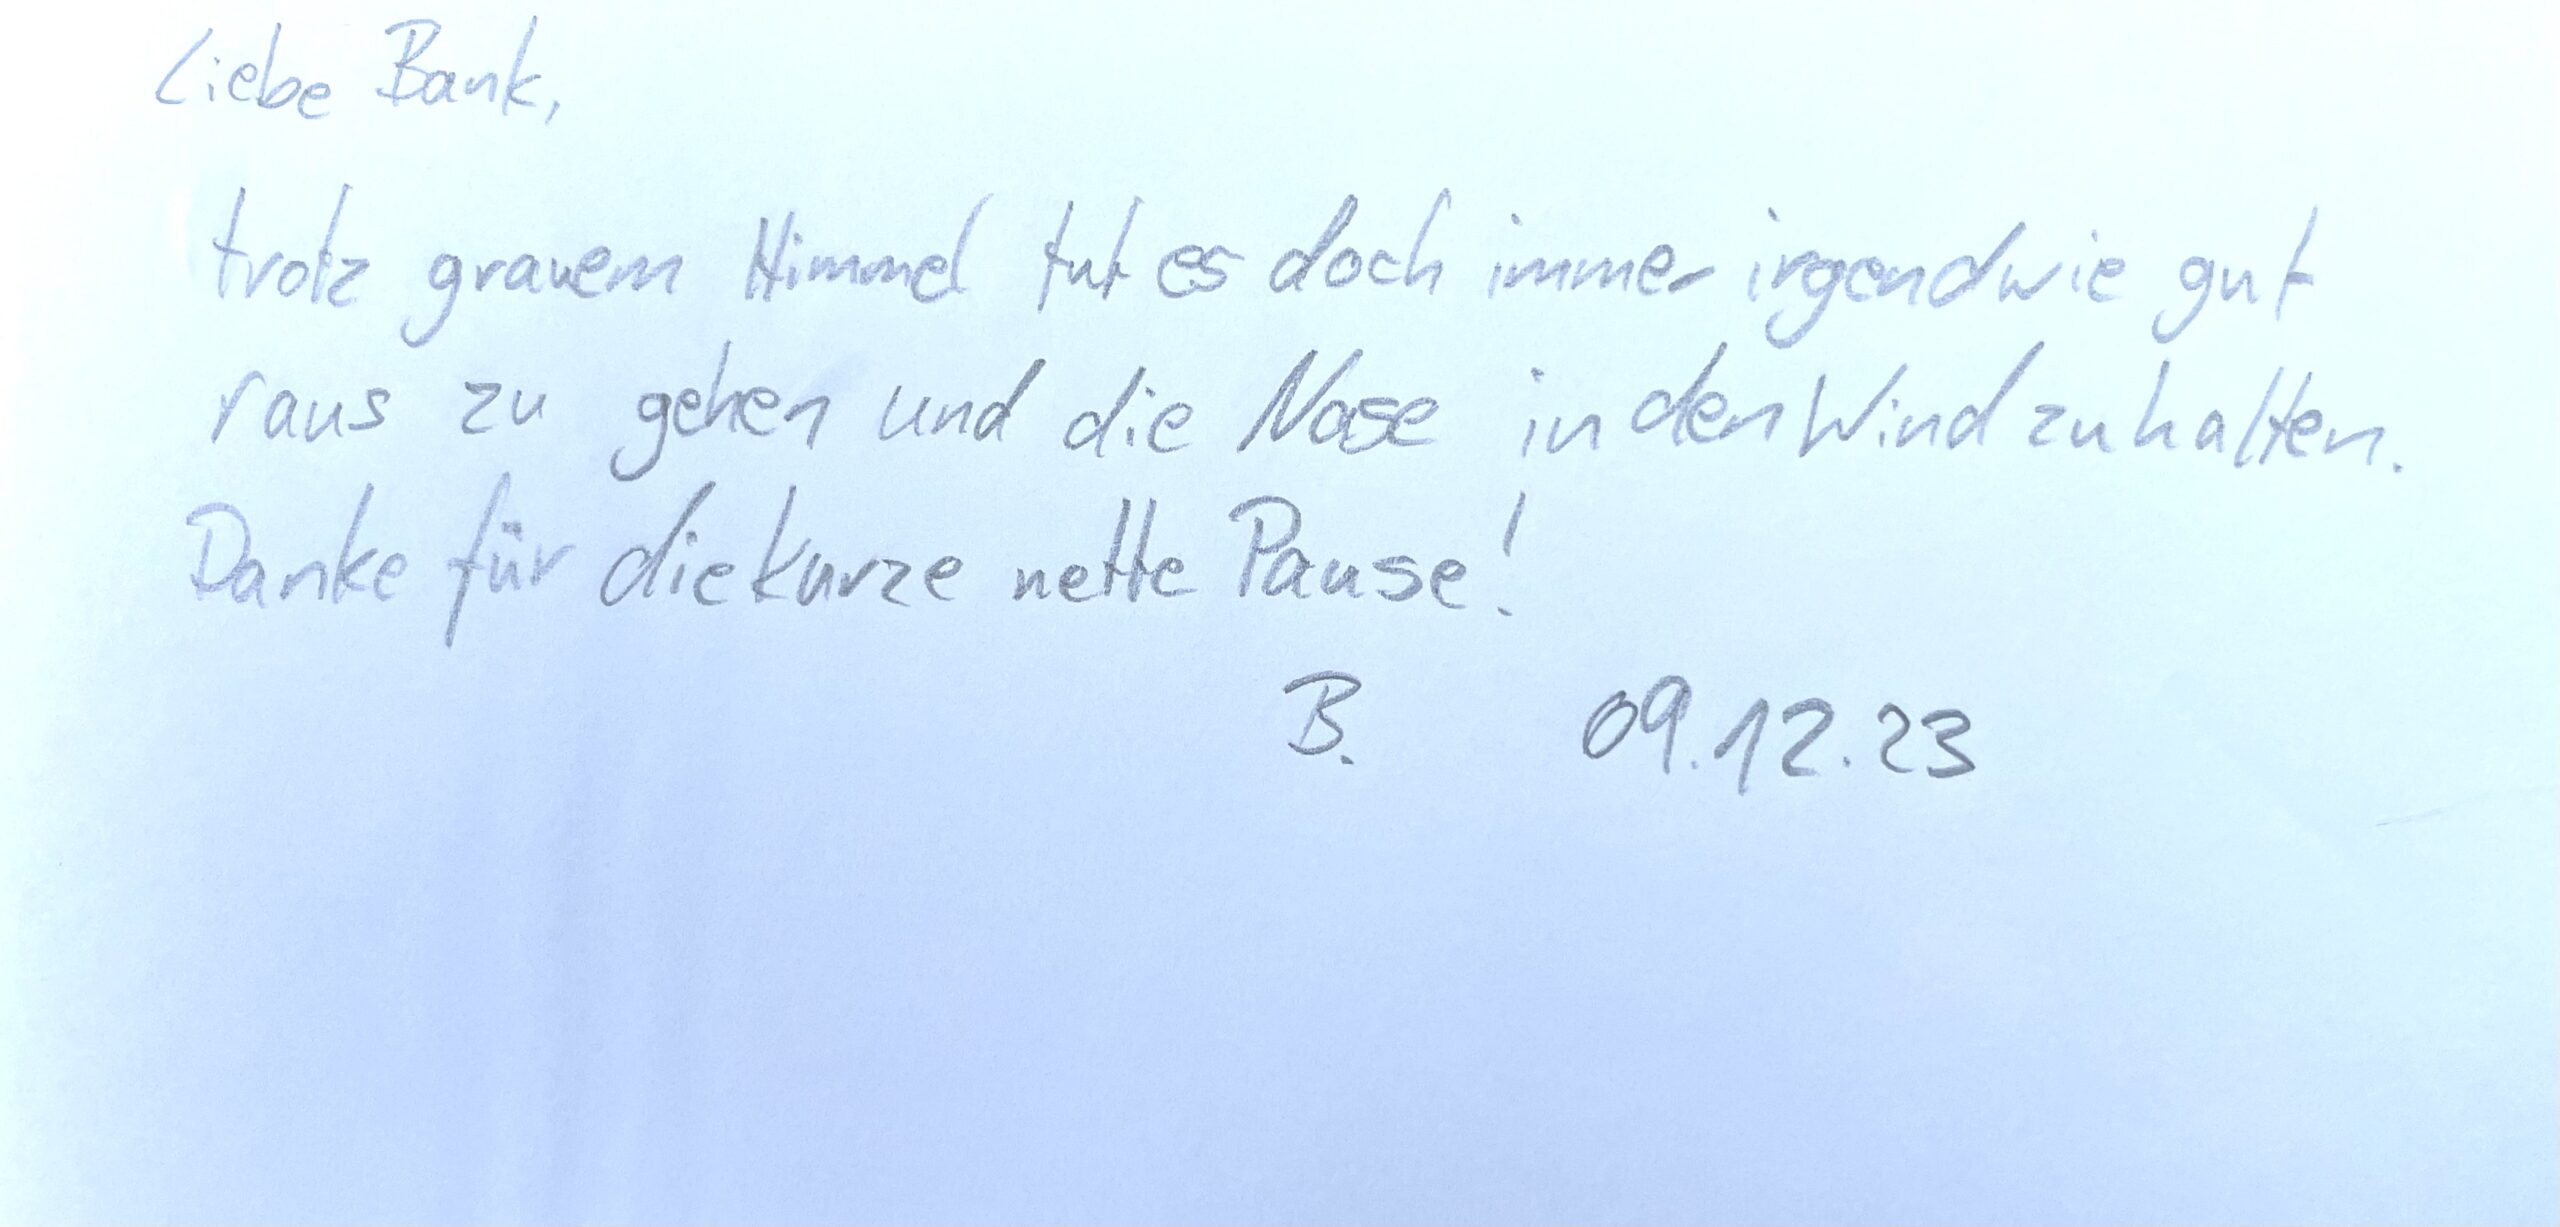 Liebe Bank,
trotz grauem Himmel tut es doch immer irgendwie gut
raus zu gehen und die Nase in den Wind zu halten.
Danke für die kurze nette Pause!
B. 09.12.23